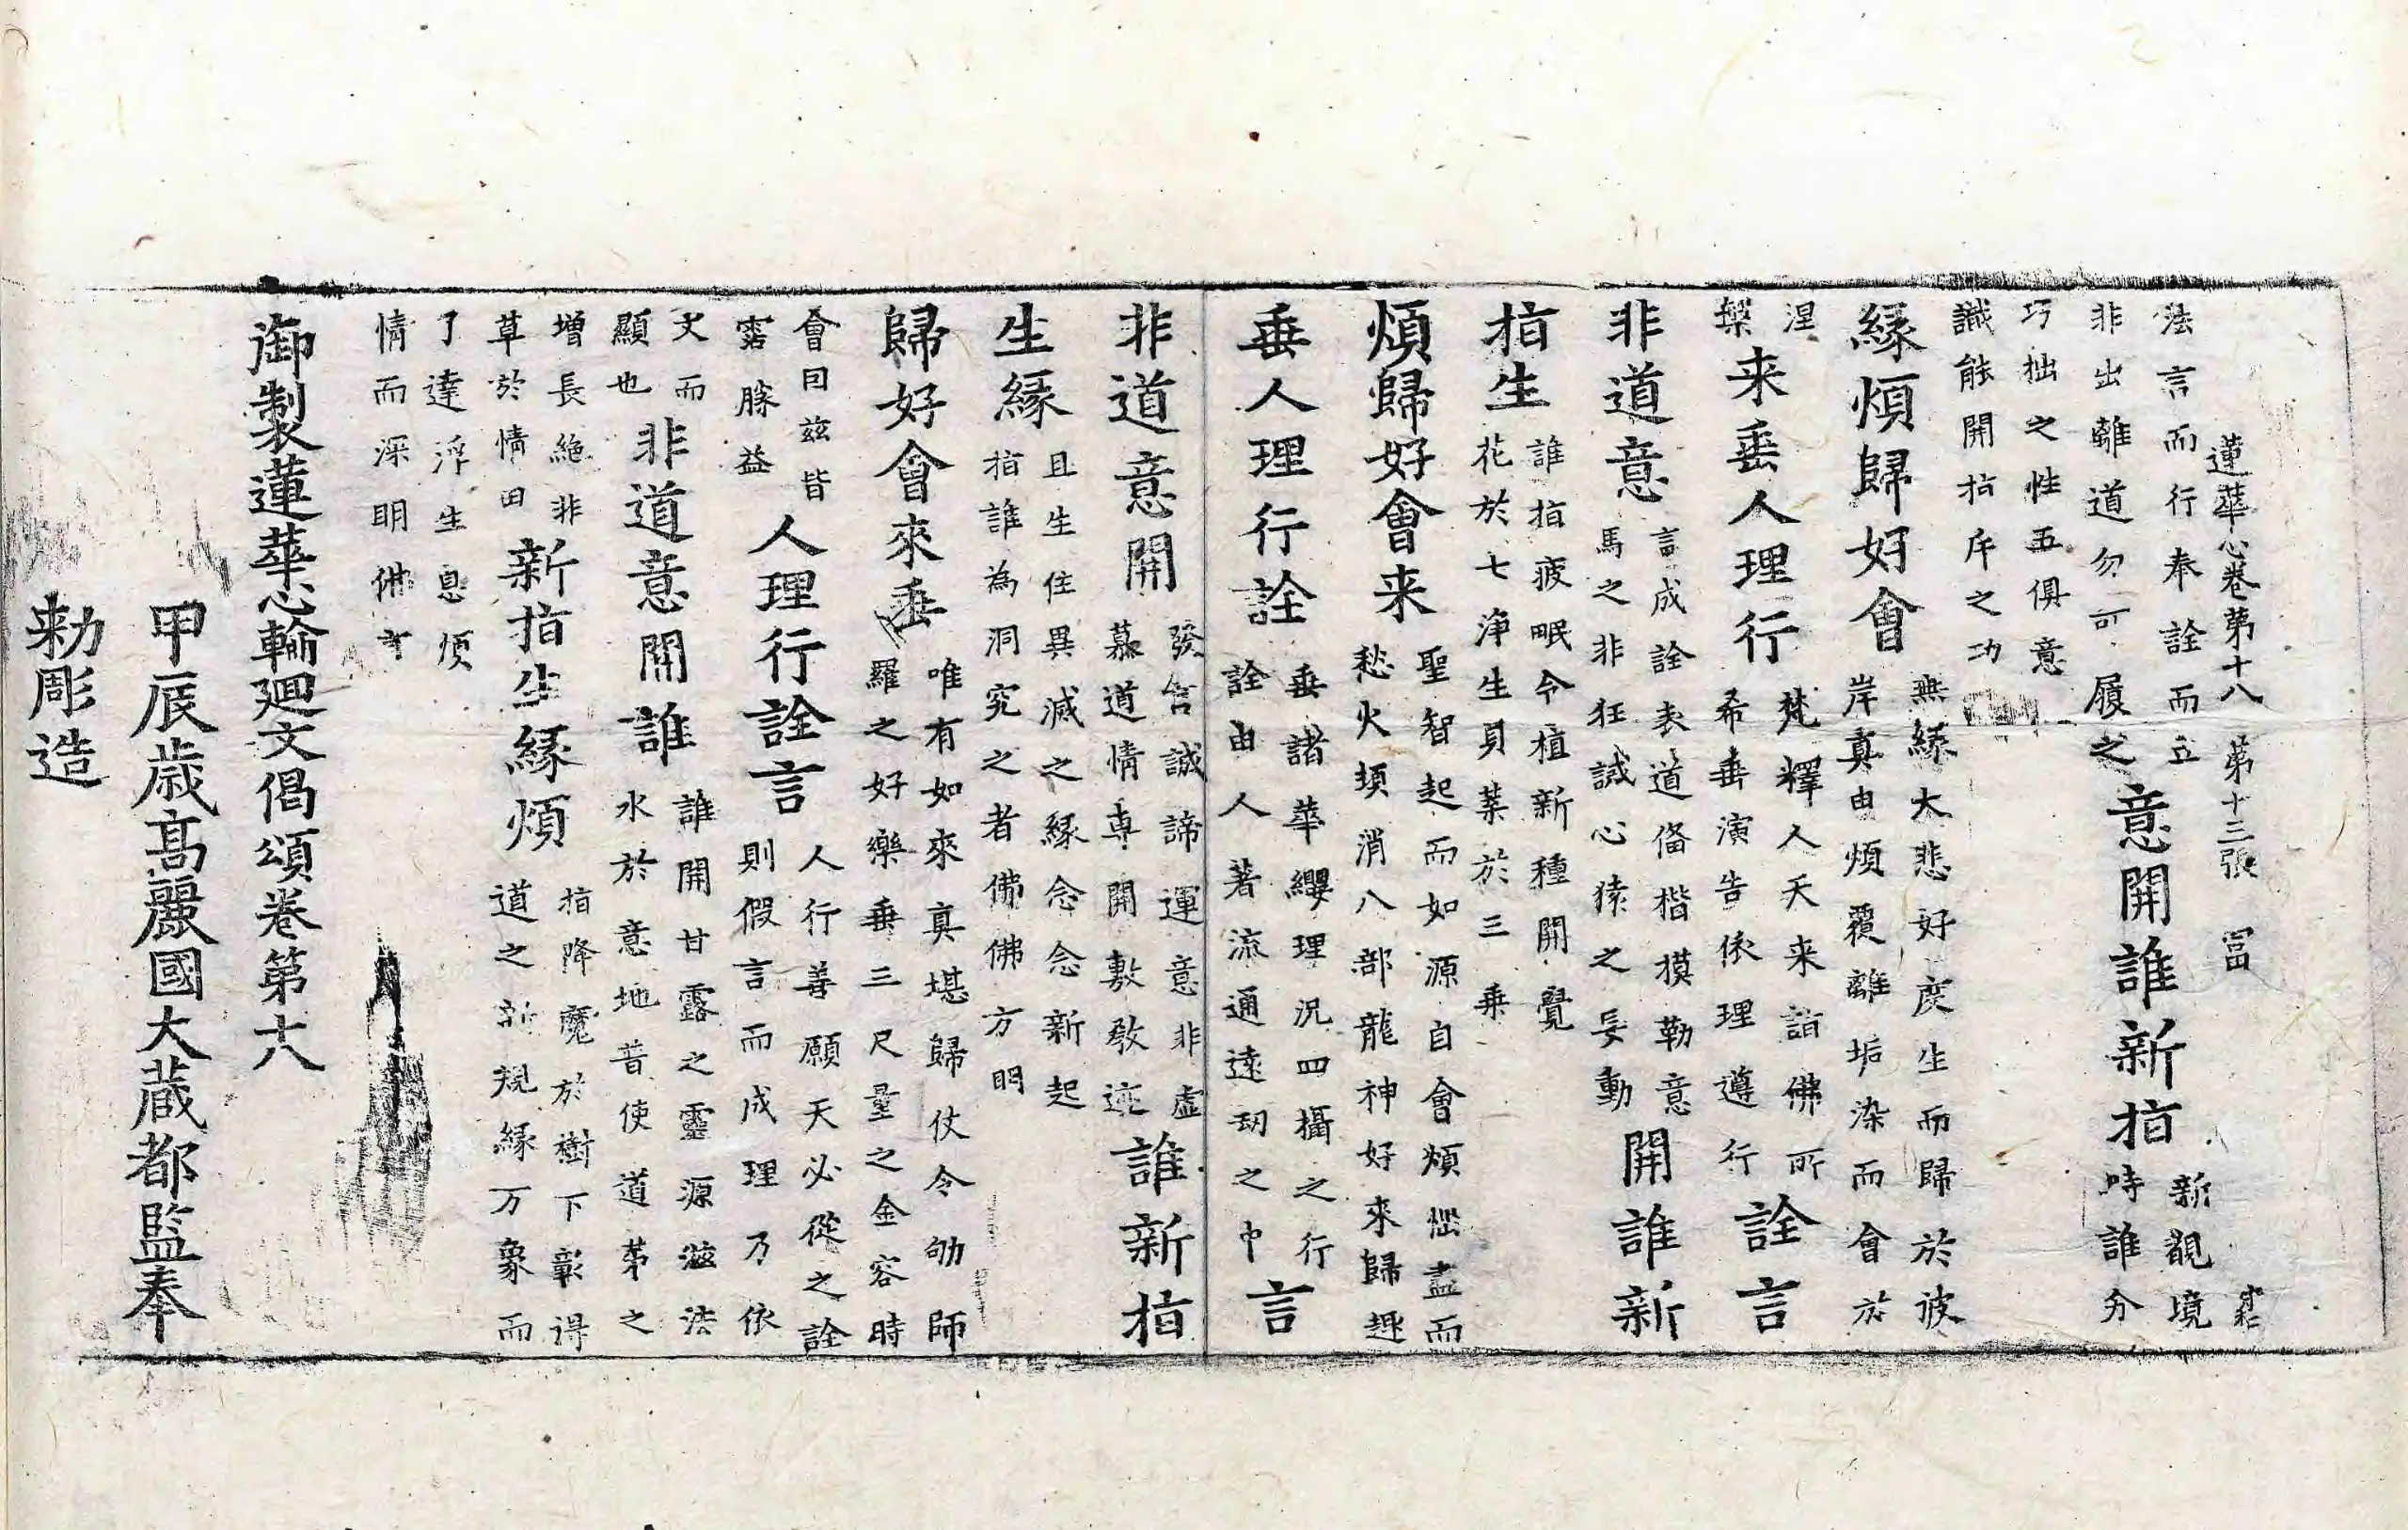 蓮華心卷第十八　第十三張　冨
法言而行奉詮而立
非出離道勿可履之
意開誰新指
新覩境
時誰分
巧拙之性五俱意
識能開指斥之功
緣煩歸好會
無緣大悲好度生而歸於彼
岸真由煩覆離垢染而會於
涅
槃
来垂人理行
梵釋人天来詣佛所
希垂演告依理遵行
詮言
非道意
言成詮表道俻楷摸勒意
馬之非狂誡心猿之妄動
開誰新
指生
誰指疲眠令植新種開覺
花於七淨生貝葉於三乗
煩歸好會来
聖智起而如源自會煩惱盡而
愁火頓消八部龍神好來歸趣
垂人理行詮
垂諸華纓理況四攝之行
詮由人著流通遠刧之中
言
非道意開
發言誠諦運意非虛
慕道情專開敷教迹
誰新指
生緣
且生住異滅之緣念念新起
指誰為洞究之者佛佛方明
歸好會來垂
唯有如來真堪歸仗令劬師
羅之好樂垂三尺量之金容時
會囙兹皆
霑勝益
人理行詮言
人行善願天必從之詮
則假言而成理乃依
文而
顯也
非道意開誰
誰開甘露之靈源滋法
水於意地普使道茅之
增長絶非
草於情田
新指生緣煩
指降魔於樹下彰得
道之新規緣万象而
了達浮生息煩
情而深明佛言
御製蓮華心輪廻文偈頌卷第十八
甲辰歲髙麗國大藏都監奉
勅彫造